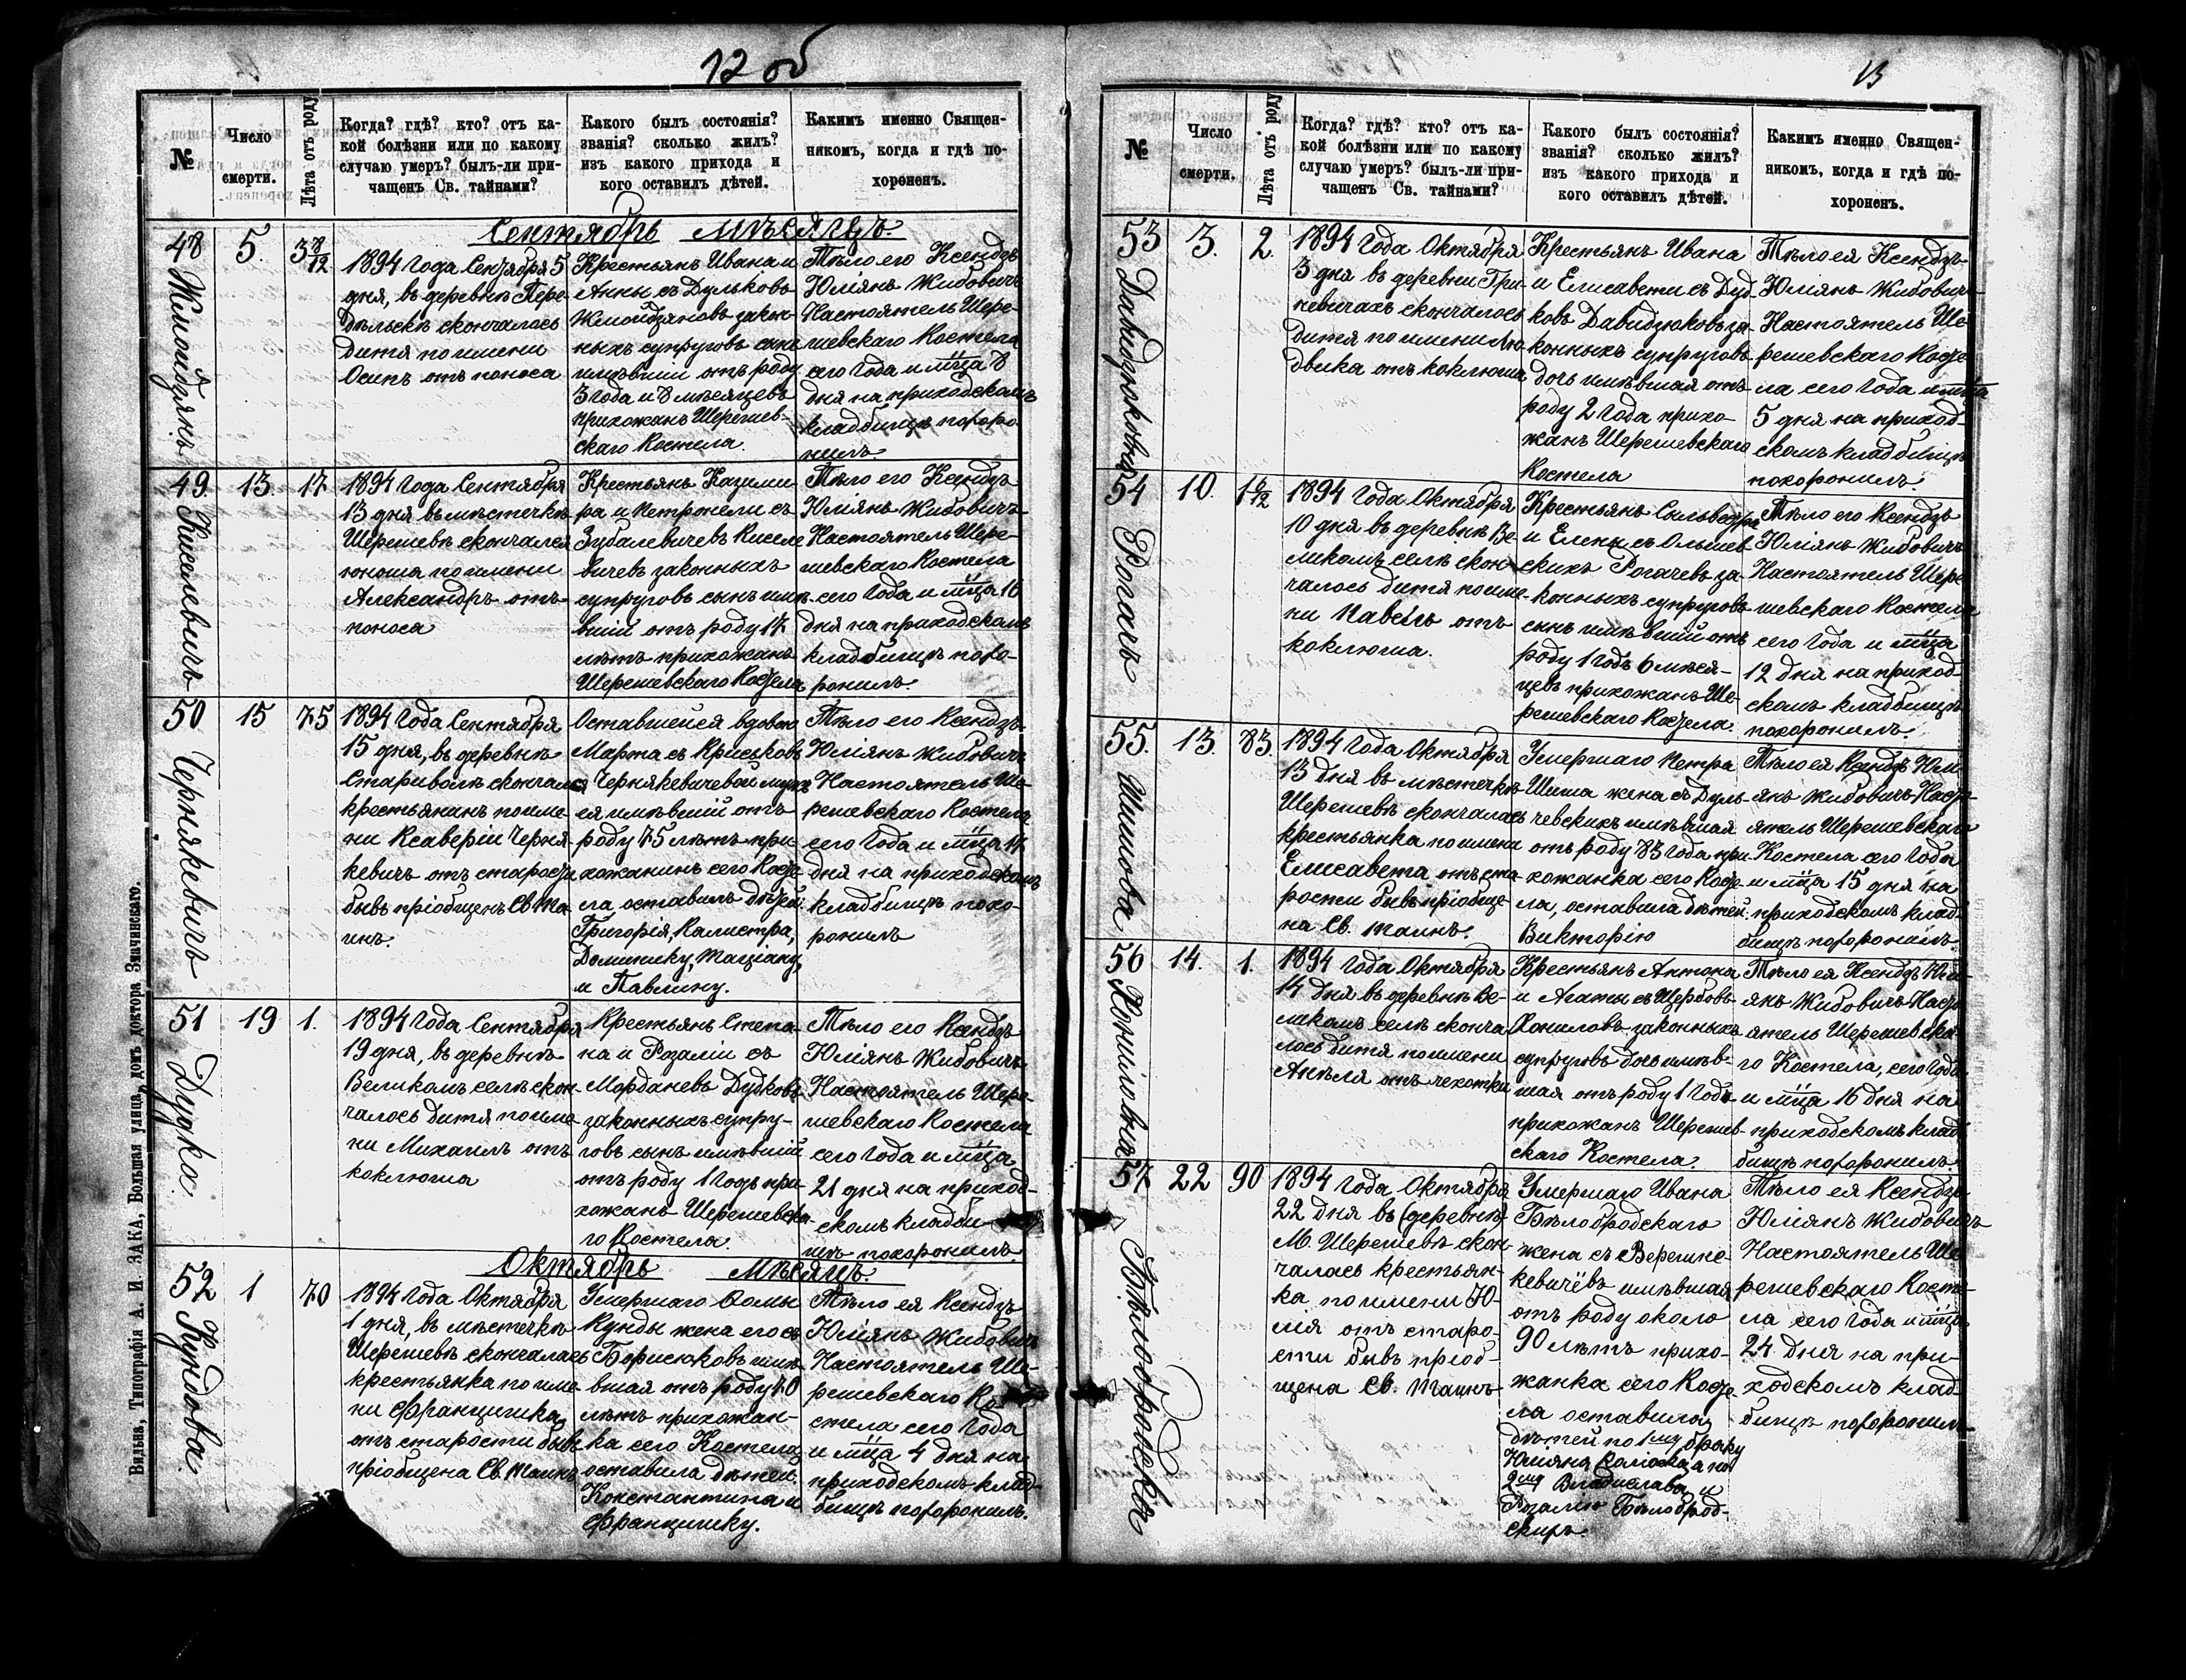 12 об
№
Число
смерти.
Лѣта отъ роду
Когда? гдѣ? кто? отъ ка-
кой болѣзни или по какому
случаю умеръ? былъ-ли при-
чащенъ Св. тайнами?
Какого былъ состоянія?
званія? сколько жилъ?
изъ какого прихода и
кого оставилъ дѣтей.
Какимъ именно Священ-
никомъ, когда и гдѣ по-
хороненъ.
Сентябрь мѣсяцъ.
48
Жмойдзянъ
5.
3 8/12
1894 Года Сентября 5
дня, въ деревнѣ Пере-
дѣльскѣ скончалось
дитя по имени
Осипъ отъ поноса
Крестьянъ Ивана и
Анны съ Дульковъ
Жмойдзяновъ закон-
ныхъ супруговъ сынъ
имѣвшій отъ роду
3 года и 8 мѣсяцевъ
прихожанъ Шерешев-
скаго Костела.
Тѣло его Ксендзъ
Юліянъ Жибовичъ
Настоятель Шере-
шевскаго Костела
сего Года и мца 8
дня на приходскомъ
кладбищѣ похоро-
нилъ.
49.
Киселевичъ
13.
17
1894 Года Сентября
13 дня въ мѣстечкѣ
Шерешевѣ скончался
юноша по имени
Александръ отъ
поноса
Крестьянъ Казими-
ра и Петронели съ
Зубалевичевъ Кисе-
вичевъ законныхъ
супруговъ сынъ имѣ-
вшій отъ роду 17
лѣтъ прихожанъ
Шерешевскаго Костела
Тѣло его Ксендзъ
Юліянъ Жибовичъ
Настоятель Шере-
шевскаго Костела
сего Года и мца 16
дня на приходскомъ
кладбищѣ похо-
ронилъ.
50
Чернякевичъ
15
75
1894 Года Сентября
15 дня, въ деревнѣ
Стариволѣ скончался
крестьянинъ по име-
ни Ксаверій Черня-
кевичъ отъ старости
бывъ пріобщенъ Св. Та-
инъ.
Оставшейся вдовою
Марта съ Криськовъ
Чернякевичевой мужъ
ея имѣвшій отъ
роду 75 лѣтъ при-
хожанинъ сего Косте-
ла оставилъ дѣтей:
Григорія, Калистра,
Доминику, Маціану
и Павлину.
Тѣло его Ксендзъ
Юліянъ Жибовичъ
Настоятель Ше-
решевскаго Костела
сего Года и мца 17
дня на приходскомъ
кладбищѣ похо-
ронилъ
51
Дудко.
19
1.
1894 Года Сентября
19 дня, въ деревнѣ
Великомъ селѣ скон-
чалось дитя по име-
ни Михаилъ отъ
коклюша
Крестьянъ Степа-
на и Розаліи съ
Морданевъ Дудковъ
законныхъ супру-
говъ сынъ имѣвшій
отъ роду 1 годъ при-
хожанъ Шерешевска-
го Костела.
Тѣло его Ксендзъ
Юліянъ Жибовичъ
Настоятель Шере-
шевскаго Костела
сего Года и мца
21 дня на приход-
скомъ кладби-
щѣ похоронилъ.
Октябрь Мѣсяцъ.
52
Кундова.
1
70
1894 Года Октября
1 дня, въ мѣстечкѣ
Шерешевѣ скончалась
крестьянка по име-
ни Францишка
отъ старости бывъ
пріобщена Св. Таинъ
Умершаго Ѳомы
Кунды жена его съ
Борисюковъ имѣ-
вшая отъ роду 70
лѣтъ прихожан-
ка сего Костела
оставила дѣтей.
Константина и
Францишку.
Тѣло ея Ксендзъ
Юліянъ Жибовичъ
Настоятель Ше-
решевскаго Ко-
стела сего Года
и мца 4 дня на
приходскомъ клад-
бищѣ похоронилъ.
Вильна, Типографія А. И ЗАКА, Большая улица, домъ доктора Зпачинскаго.
13
№
Число
смерти.
Лѣта отъ роду
Когда? гдѣ? кто? отъ ка-
кой болѣзни или по какому
случаю умеръ? былъ-ли при-
чащенъ Св. тайнами?
Какого былъ состоянія?
званія? сколько жилъ?
изъ какого прихода и
кого оставилъ дѣтей.
Какимъ именно Священ-
никомъ, когда и гдѣ по-
хороненъ.
53
Давидзюковна
3.
2.
1894 Года Октября
3 дня въ деревни Гри-
невичахъ скончалось
дитя по имени Лю-
двика отъ коклюша
Крестьянъ Ивана
и Елисавети съ Дуд-
ковъ Давидзюковъ за-
конныхъ супруговъ
дочь имѣвшая отъ
роду 2 Года прихо-
жанъ Шерешевскаго
Костела
Тѣло ея Ксендзъ
Юліянъ Жибовичъ
Настоятель Ше-
решевскаго Косте-
ла сего Года и мца
5 дня на приход-
скомъ кладбищѣ
похоронилъ.
54
Рогачъ
10.
1 6/12
1894 Года Октября
10 дня въ деревнѣ Ве-
ликомъ селѣ скон-
чалось дитя по име-
ни Павелъ отъ
коклюша.
Крестьянъ Сильвестра
и Елены съ Ольшев-
скихъ Рогачевъ за-
конныхъ супруговъ
сынъ имѣвшій отъ
роду 1 Годъ 6 мѣся-
цевъ прихожанъ Ше-
решевскаго Костела.
Тѣло его Ксендзъ
Юліянъ Жибовичъ
Настоятель Шере-
шевскаго Костела
сего Года и мца
12 дня на приход-
скомъ кладбищѣ
похоронилъ.
55.
Шишова
13.
83.
1894 Года Октября
13 дня въ мѣстечкѣ
Шерешевѣ скончалась
крестьянка по имени
Елисавета отъ ста-
рости бывъ пріобще-
на Св. таинъ.
Умершаго Петра
Шиша жена съ Дуль-
чевскихъ имѣвшая
отъ роду 83 Года при-
хожанка сего Косте-
ла, оставила дѣтей.
Викторію
Тѣло ея Ксендзъ Юли-
янъ Жибовичъ Насто-
ятель Шерешевскаго
Костела сего Года
и мца 15 дня на
приходскомъ клад-
бищѣ похоронилъ.
56
Хониловна
14.
1.
1894 Года Октября
14 дня въ деревнѣ Ве-
ликомъ селѣ сконча-
лось дитя по имени
Анеля отъ чехотки
Крестьянъ Антона
и Агаты съ Щербовъ
Хониловъ законныхъ
супруговъ дочь имѣв-
шая отъ роду 1 Годъ
прихожанъ Шерешев-
скаго Костела.
Тѣло ея Ксендзъ Юли-
янъ Жибовичъ Насто-
ятель Шерешевска-
го Костела, сего Года
и мца 16 дня на
приходскомъ клад-
бищѣ похоронилъ.
57
Бѣлобродска
22
90
1894 Года Октября
22 дня въ (деревнѣ)
М. Шерешевѣ скон-
чалась крестьян-
ка по имени Ю-
лія отъ старо-
сти бывъ пріоб-
щена Св. Таинъ
Умершаго Ивана
Бѣлобродскаго
жена съ Верешко-
кевичёвъ имѣвшая
отъ роду около
90 лѣтъ прихо-
жанка сего Косте-
ла оставила
дѣтей по 1му браку
Юліяна а по
2му Владислава и
Розалію Бѣлоброд-
скихъ.
Тѣло ея Ксендзъ
Юліянъ Жибовичъ
Настоятель Ше-
решевскаго Косте-
ла сего Года и мца
24 дня на при-
ходскомъ клад-
бищѣ похоронилъ